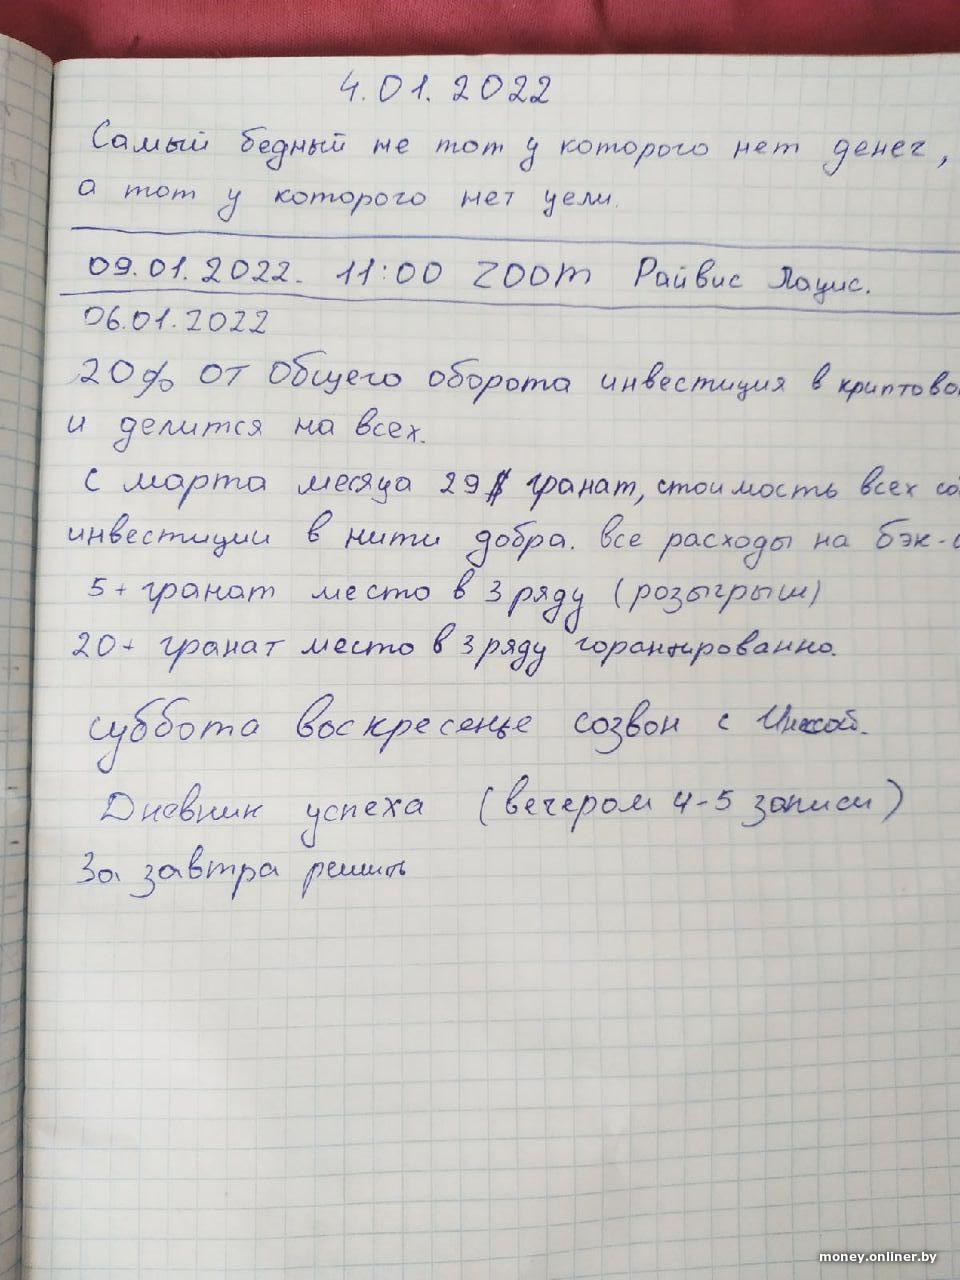 4.01.2022
Самый бедный не тот у которого нет денег,
а тот у которого нет цели.
09.01.2022. 11:00 ZOOM Райвис Лацис.
06.01.2022
20% от Общего оборота инвестиция в криптово
и делится на всех.
С марта месяца 29$ гранат, стоимость всех со
инвестиции в нити добра. все расходы на бэк-о
5+ гранат место в 3 ряду (розыгрыш)
20+ гранат место в 3 ряду горантированно.
суббота воскресенье созвон с
Дневник успеха (вечером 4-5 записи)
За завтра решить
money.onliner.by